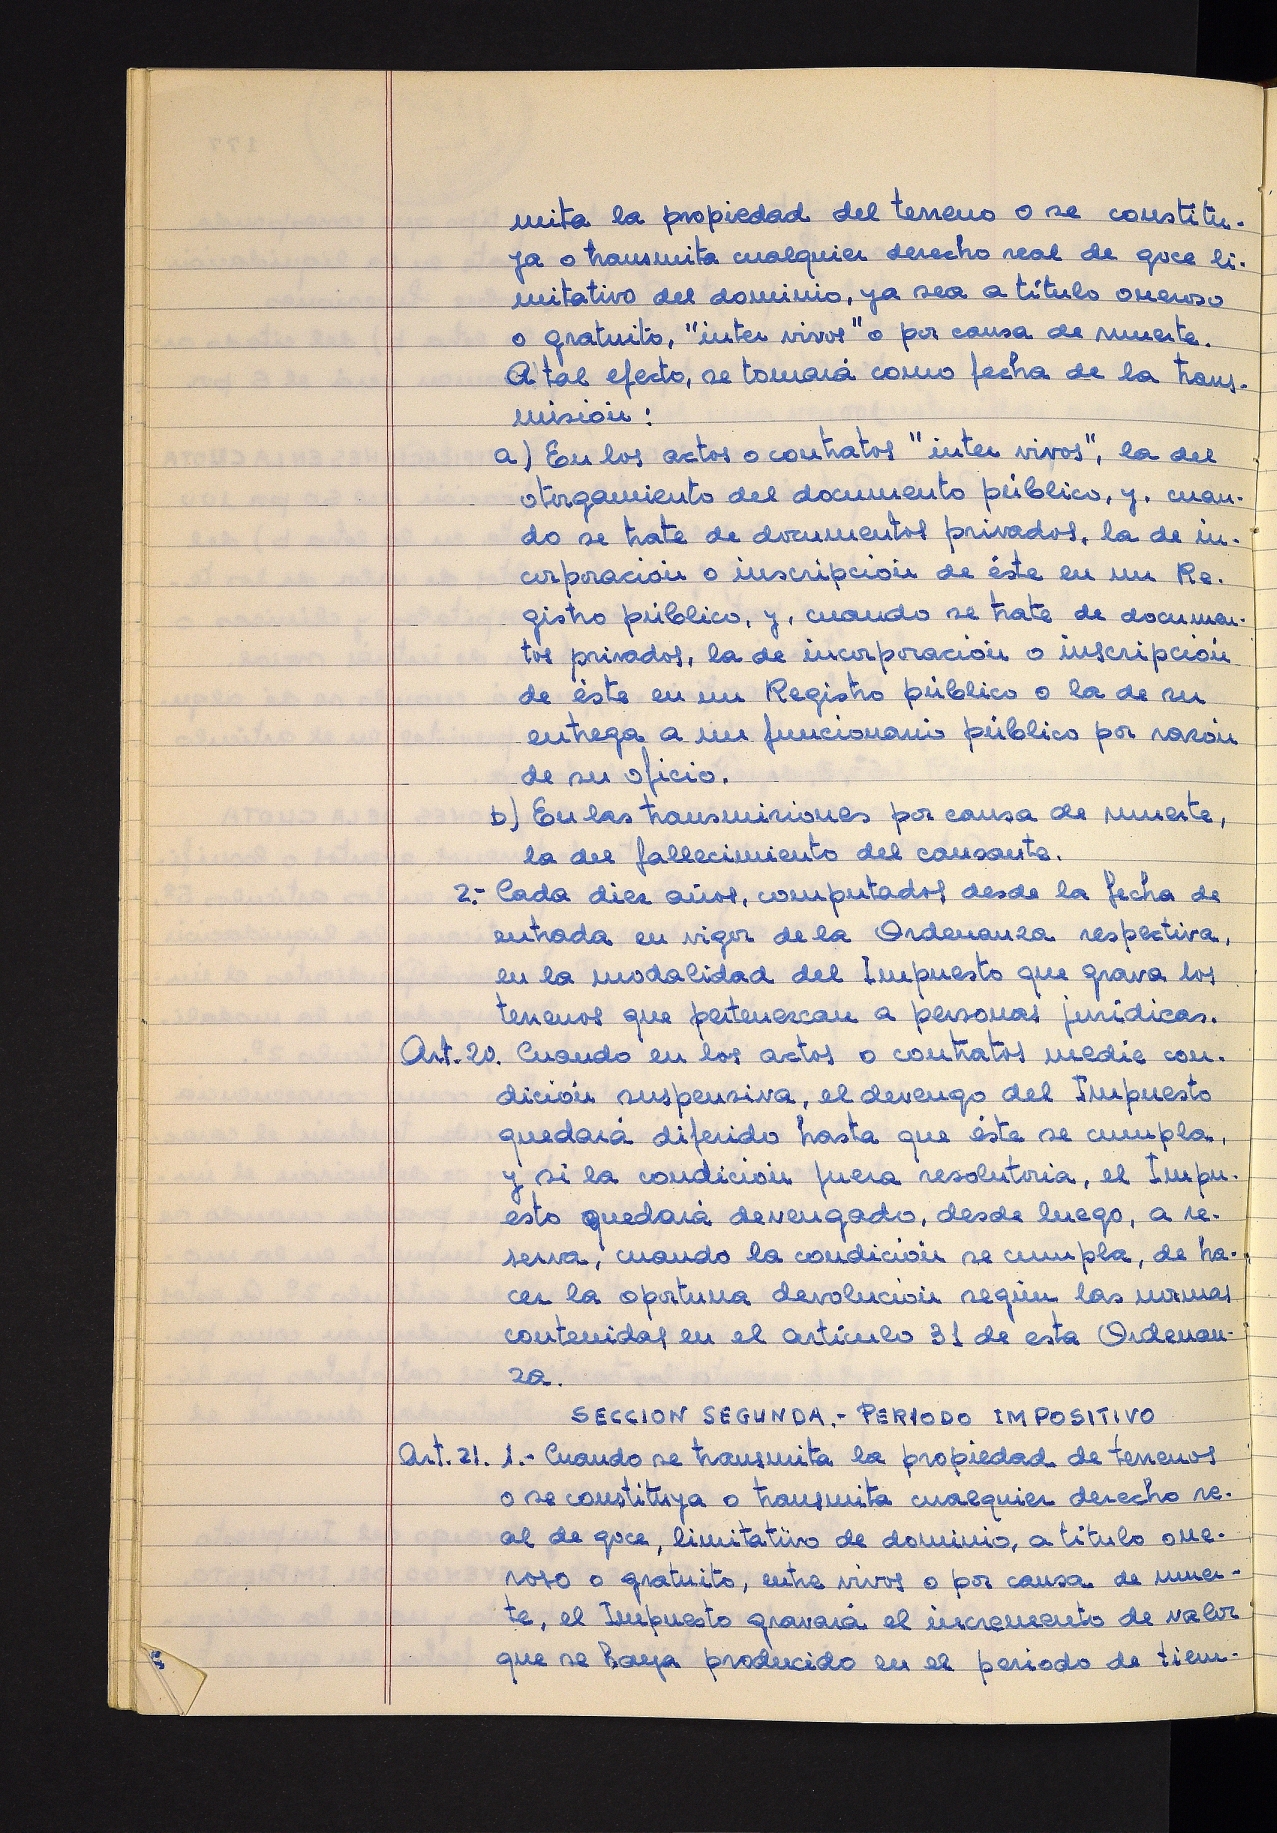 mita la propiedad del terreno o se constitu-
ya o transmita cualquier derecho real de goce li-
mitativo del dominio, ya sea a título oneroso
o gratuito, "inter vivos" o por causa de muerte.
A tal efecto, se tomará como fecha de la trans-
misión:
a) En los actos o contratos "inter vivos", la del
otorgamiento del documento público, y, cuan-
do se trate de documentos privados, la de in-
corporación o inscripción de éste en un Re-
gistro público, y, cuando se trate de documen-
tos privados, la de incorporación o inscripción
de éste en un Registro público o la de su
entrega a un funcionario público por razón
de su oficio.
b) En las transmisiones por causa de muerte,
la del fallecimiento del causante.
2.- Cada diez años, computados desde la fecha de
entrada en vigor de la Ordenanza respectiva,
en la modalidad del Impuesto que grava los
terrenos que pertenezcan a personas jurídicas.
Art. 20. Cuando en los actos o contratos medie con-
dición suspensiva, el devengo del Impuesto
quedará diferido hasta que éste se cumpla,
y si la condición fuera resolutoria, el Impu-
esto quedará devengado, desde luego, a re-
serva, cuando la condición se cumpla, de ha-
cer la oportuna devolución según las normas
contenidas en el artículo 31 de esta Ordenan-
za.
SECCION SEGUNDA.- PERIODO IMPOSITIVO
Art. 21. 1.- Cuando se transmita la propiedad de terrenos
o se constituya o transmita cualquier derecho re-
al de goce, limitativo de dominio, a título one-
roso o gratuito, entre vivos o por causa de muer-
te, el Impuesto gravará el incremento de valor
que se haya producido en el periodo de tiem-